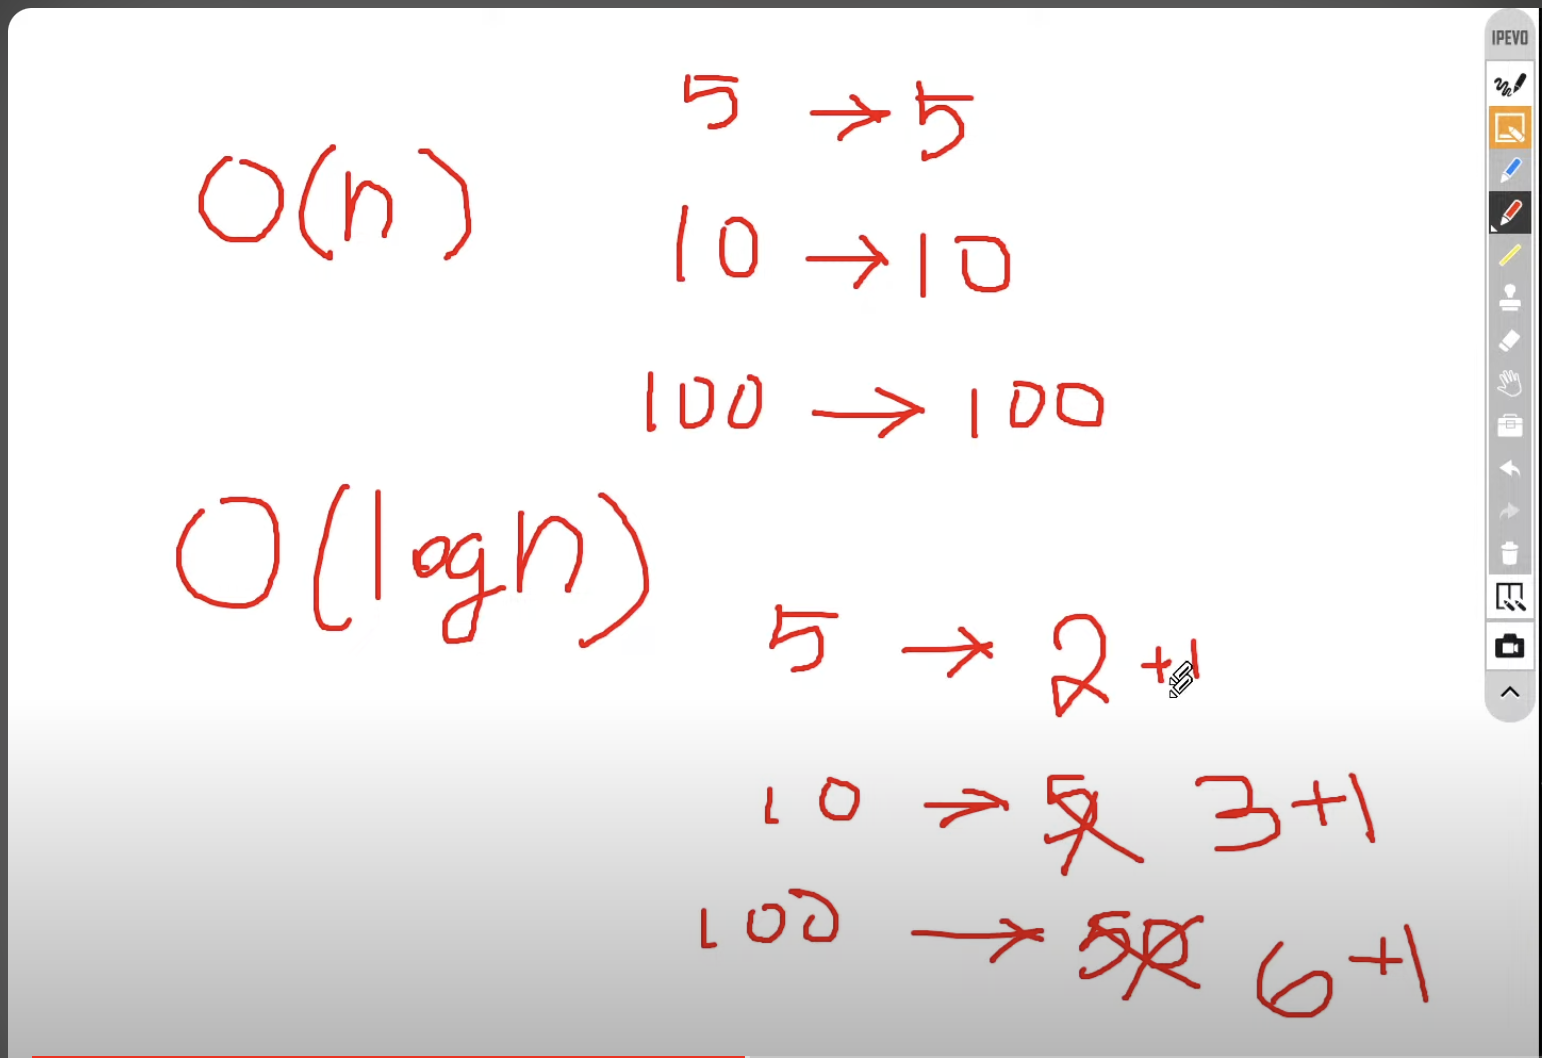 IPEVO
5 → 5
O(n)
10 → 10
100 → 100
O(logn)
5 → 2 +1
10 → 5 3+1
100 → 50 6+1